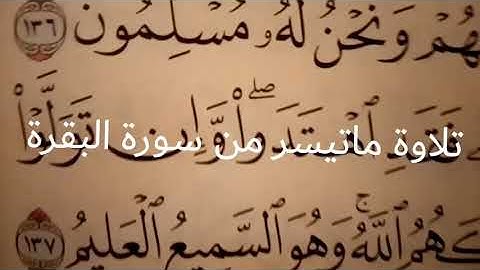 هُمْ وَنَحْنُ لَهُۥ مُسْلِمُونَ ١٣٦
فَقَدِ ٱهْتَدَوا۟ ۖ وَّإِن تَوَلَّوْا۟
تلاوة ماتيسر من سورة البقرة
كَهُمُ ٱللَّهُ ۚ وَهُوَ ٱلسَّمِيعُ ٱلْعَلِيمُ ١٣٧